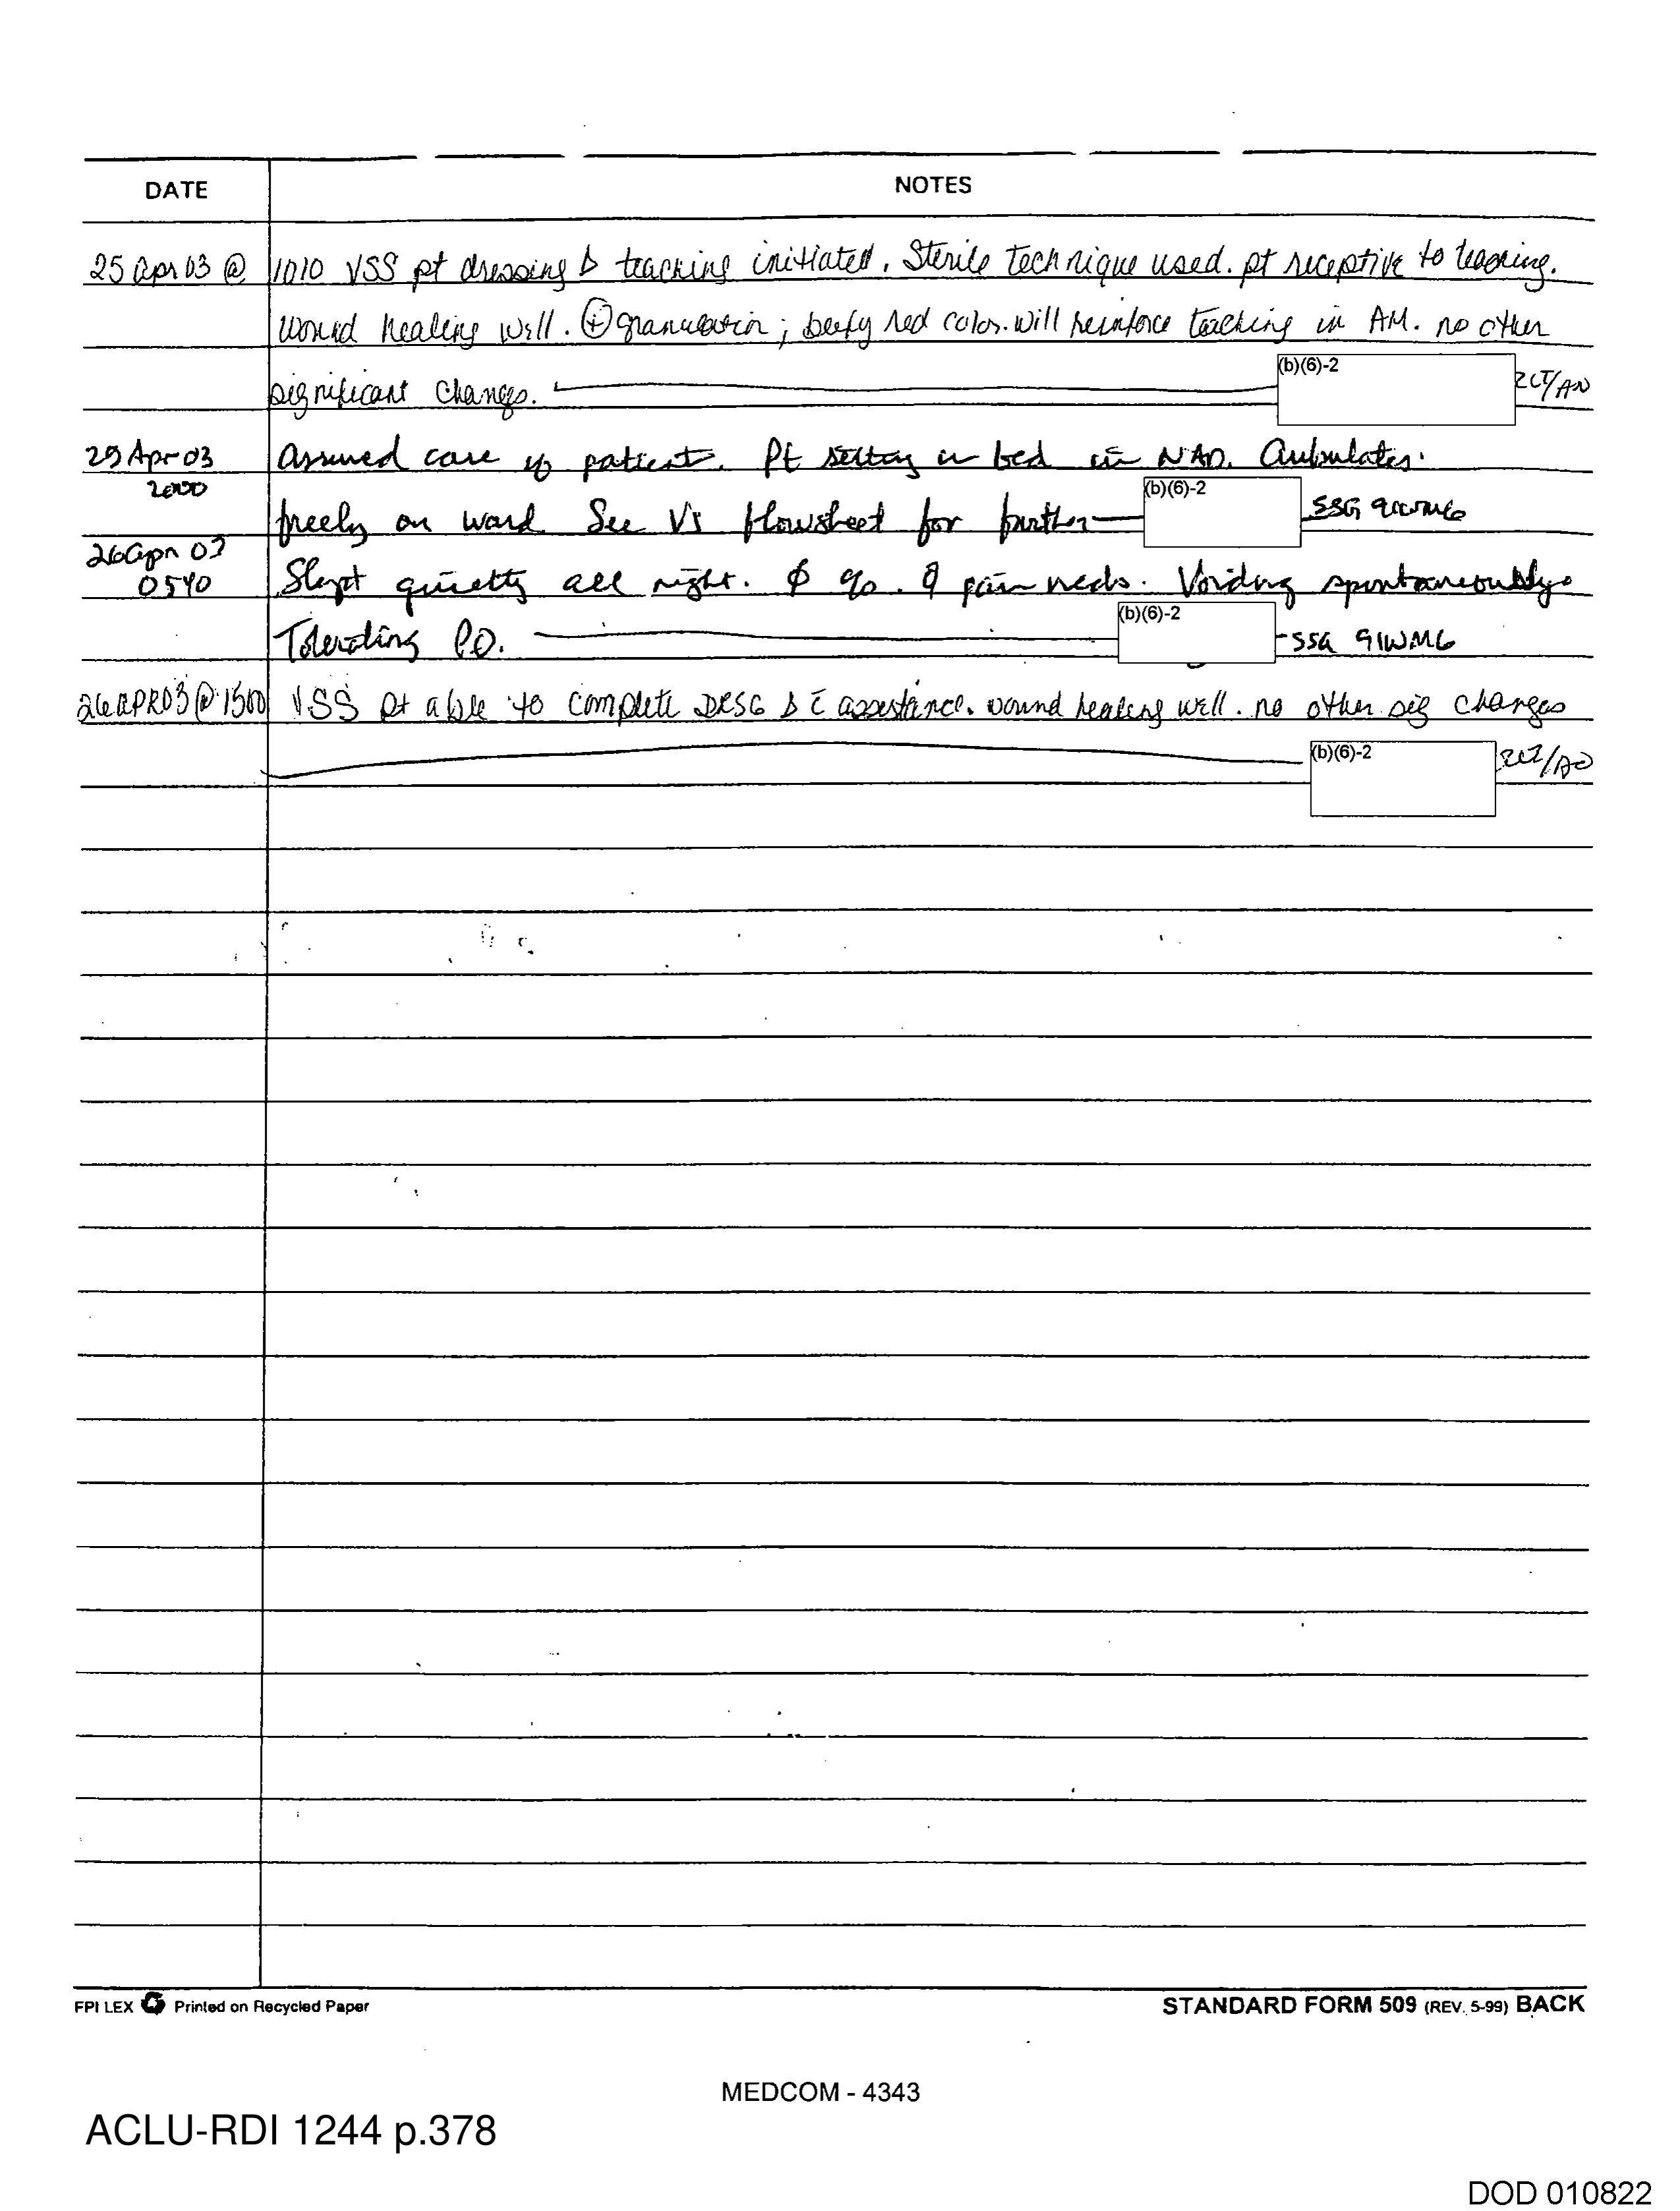 DATE NOTES
25 Apr 03 @ 1010 VSS pt dressing Δ teaching initiated. Sterile technique used. pt receptive to teaching.
wound healing well. ⊕ granulation; beefy red color. will reinforce teaching in AM. no other
(b)(6)-2
significant changes. 2LT/AN
25 Apr 03 Assumed care of patient. Pt sitting in bed in NAD. Ambulates
2000 (b)(6)-2
freely on ward. See VS flowsheet for further SSG 91WM6
26 Apr 03
0540 Slept quietly all night. ∅ c/o. ∅ pain meds. Voiding spontaneously.
(b)(6)-2
Tolerating PO. SSG 91WM6
26 APR 03 @ 1500 VSS pt able to complete DRSG Δ c̄ assistance. wound healing well. no other sig changes
(b)(6)-2 2LT/AN
FPI LEX Printed on Recycled Paper STANDARD FORM 509 (REV. 5-99) BACK
MEDCOM - 4343
ACLU-RDI 1244 p.378
DOD 010822